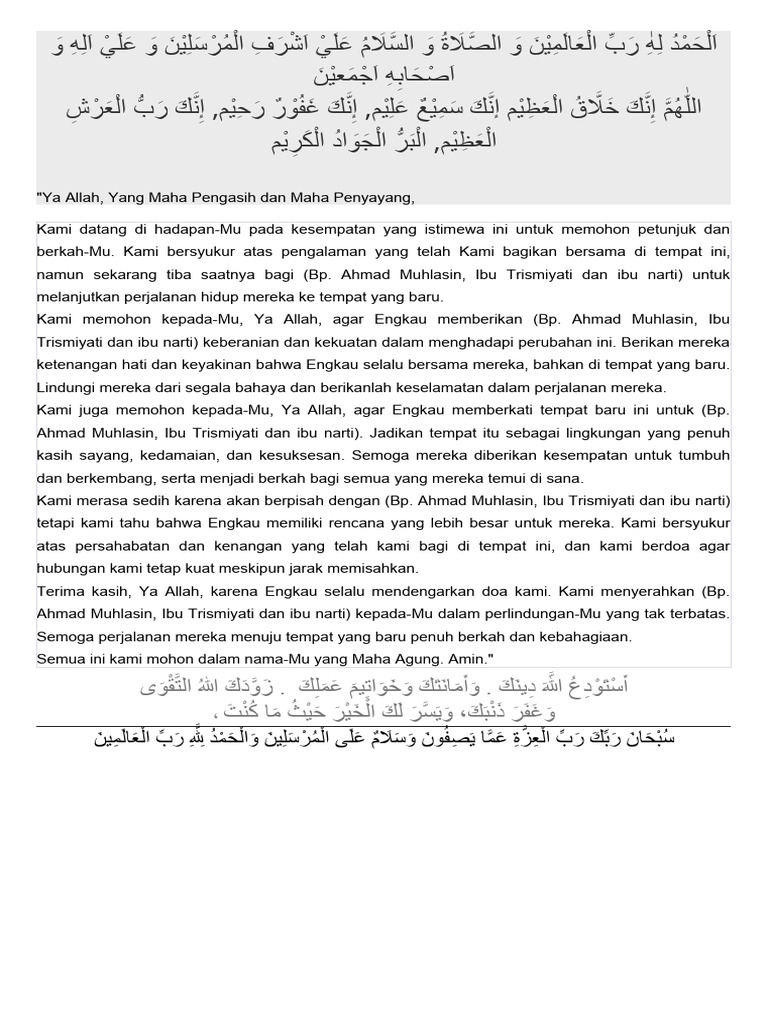 اَلْحَمْدُ لِلهِ رَبِّ الْعَالَمِيْنَ وَ الصَّلَاةُ وَ السَّلَامُ عَلَيْ اَشْرَفِ الْمُرْسَلِيْنَ وَ عَلَيْ اَلِهِ وَ
اَصْحَابِهِ اَجْمَعيْنَ
اللّٰهُمَّ إِنَّكَ خَلَّاقُ الْعَظِيْم إنَّكَ سَمِيْعٌ عَلِيْم, إِنَّكَ غَفُوْرٌ رَحِيْم, إِنَّكَ رَبُّ الْعَرْشِ
الْعَظِيْم, الْبَرُّ الْجَوَادُ الْكَرِيْم
"Ya Allah, Yang Maha Pengasih dan Maha Penyayang,
Kami datang di hadapan-Mu pada kesempatan yang istimewa ini untuk memohon petunjuk dan
berkah-Mu. Kami bersyukur atas pengalaman yang telah Kami bagikan bersama di tempat ini,
namun sekarang tiba saatnya bagi (Bp. Ahmad Muhlasin, Ibu Trismiyati dan ibu narti) untuk
melanjutkan perjalanan hidup mereka ke tempat yang baru.
Kami memohon kepada-Mu, Ya Allah, agar Engkau memberikan (Bp. Ahmad Muhlasin, Ibu
Trismiyati dan ibu narti) keberanian dan kekuatan dalam menghadapi perubahan ini. Berikan mereka
ketenangan hati dan keyakinan bahwa Engkau selalu bersama mereka, bahkan di tempat yang baru.
Lindungi mereka dari segala bahaya dan berikanlah keselamatan dalam perjalanan mereka.
Kami juga memohon kepada-Mu, Ya Allah, agar Engkau memberkati tempat baru ini untuk (Bp.
Ahmad Muhlasin, Ibu Trismiyati dan ibu narti). Jadikan tempat itu sebagai lingkungan yang penuh
kasih sayang, kedamaian, dan kesuksesan. Semoga mereka diberikan kesempatan untuk tumbuh
dan berkembang, serta menjadi berkah bagi semua yang mereka temui di sana.
Kami merasa sedih karena akan berpisah dengan (Bp. Ahmad Muhlasin, Ibu Trismiyati dan ibu narti)
tetapi kami tahu bahwa Engkau memiliki rencana yang lebih besar untuk mereka. Kami bersyukur
atas persahabatan dan kenangan yang telah kami bagi di tempat ini, dan kami berdoa agar
hubungan kami tetap kuat meskipun jarak memisahkan.
Terima kasih, Ya Allah, karena Engkau selalu mendengarkan doa kami. Kami menyerahkan (Bp.
Ahmad Muhlasin, Ibu Trismiyati dan ibu narti) kepada-Mu dalam perlindungan-Mu yang tak terbatas.
Semoga perjalanan mereka menuju tempat yang baru penuh berkah dan kebahagiaan.
Semua ini kami mohon dalam nama-Mu yang Maha Agung. Amin."
أَسْتَوْدِعُ اللَّهَ دِينَكَ . وَأَمَانَتَكَ وَخَوَاتِيمَ عَمَلِكَ . زَوَّدَكَ اللهُ التَّقْوَى
وَغَفَرَ ذَنْبَكَ، وَيَسَّرَ لَكَ الْخَيْرَ حَيْثُ مَا كُنْتَ ،
سُبْحَانَ رَبِّكَ رَبِّ الْعِزَّةِ عَمَّا يَصِفُونَ وَسَلَامٌ عَلَى الْمُرْسَلِينَ وَالْحَمْدُ لِلَّهِ رَبِّ الْعَالَمِينَ